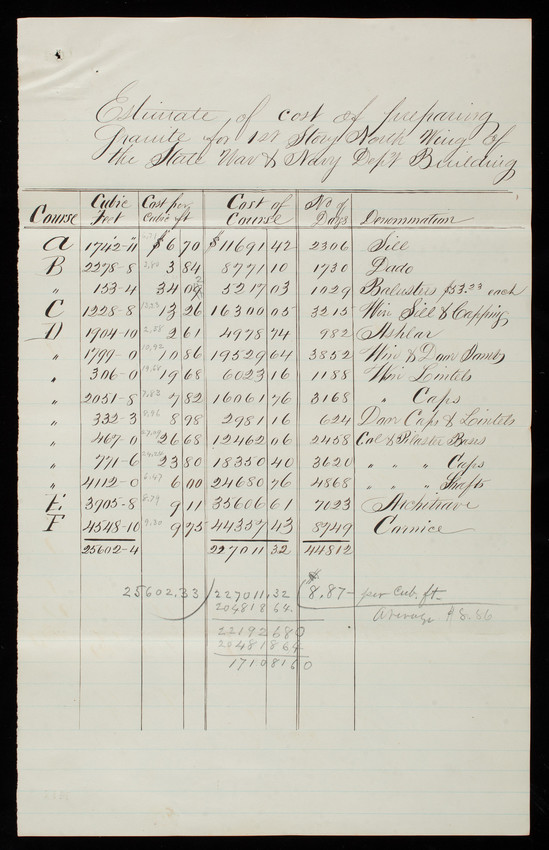 Estimate of cost of preparing
granite for 1st Story North Wing of
the State War & Navy Dep't Building
Course Cubic Feet Cost per Cubic ft Cost of Course No of Days Denomination
A 1742-11 $6 70 $11691 42 2306 Sill
B 2278-8 3 84 8771 10 1730 Dado
" 153-4 34 03 5217 03 1029 Balusters $53.23 each
C 1228-8 13 26 16300 05 3215 Win Sill & Capping
D 1904-10 2 61 4978 74 982 Ashlar
" 1799-0 10 86 19529 64 3852 Win & Door Jambs
" 306-0 19 68 6023 16 1188 Win Lintels
" 2051-8 7 82 16061 76 3168 " Caps
" 332-3 8 98 2981 16 624 Door Caps & Lintels
" 467-0 26 68 12462 06 2458 Col & Pilaster Bases
" 771-6 23 80 18350 40 3620 " " " Caps
" 4112-0 6 00 24680 76 4868 " " " Shafts
E 3905-8 9 11 35606 61 7023 Architrave
F 4548-10 9 75 44357 43 8749 Cornice
25602-4 227011 32 44812
25602.33 ) 227011.32 ( $8.87 - per cub. ft.
204818 64 average
2219268 0
2048186 4
1710816 0